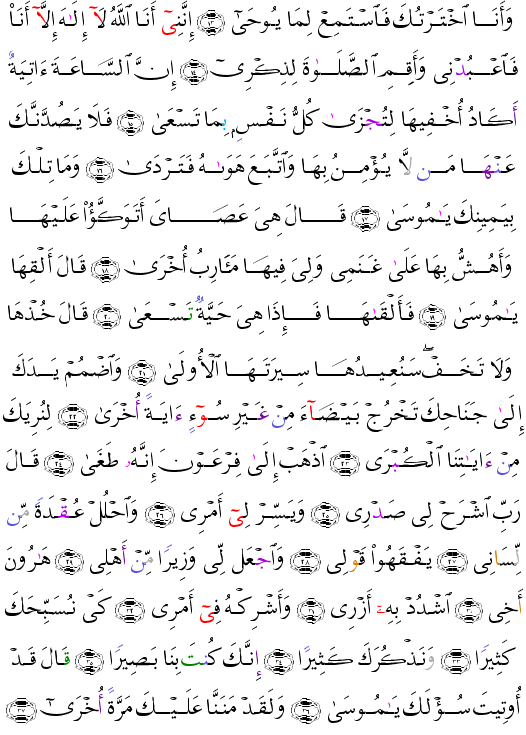 وَأَنَا ٱخْتَرْتُكَ فَٱسْتَمِعْ لِمَا يُوحَىٰٓ ﴿١٣﴾ إِنَّنِىٓ أَنَا ٱللَّهُ لَآ إِلَـٰهَ إِلَّآ أَنَا۠
فَٱعْبُدْنِى وَأَقِمِ ٱلصَّلَوٰةَ لِذِكْرِىٓ ﴿١٤﴾ إِنَّ ٱلسَّاعَةَ ءَاتِيَةٌ
أَكَادُ أُخْفِيهَا لِتُجْزَىٰ كُلُّ نَفْسٍۭ بِمَا تَسْعَىٰ ﴿١٥﴾ فَلَا يَصُدَّنَّكَ
عَنْهَا مَن لَّا يُؤْمِنُ بِهَا وَٱتَّبَعَ هَوَىٰهُ فَتَرْدَىٰ ﴿١٦﴾ وَمَا تِلْكَ
بِيَمِينِكَ يَـٰمُوسَىٰ ﴿١٧﴾ قَالَ هِىَ عَصَاىَ أَتَوَكَّؤُا۟ عَلَيْهَا
وَأَهُشُّ بِهَا عَلَىٰ غَنَمِى وَلِىَ فِيهَا مَـَٔارِبُ أُخْرَىٰ ﴿١٨﴾ قَالَ أَلْقِهَا
يَـٰمُوسَىٰ ﴿١٩﴾ فَأَلْقَىٰهَا فَإِذَا هِىَ حَيَّةٌ تَسْعَىٰ ﴿٢٠﴾ قَالَ خُذْهَا
وَلَا تَخَفْ ۖ سَنُعِيدُهَا سِيرَتَهَا ٱلْأُولَىٰ ﴿٢١﴾ وَٱضْمُمْ يَدَكَ
إِلَىٰ جَنَاحِكَ تَخْرُجْ بَيْضَآءَ مِنْ غَيْرِ سُوٓءٍ ءَايَةً أُخْرَىٰ ﴿٢٢﴾ لِنُرِيَكَ
مِنْ ءَايَـٰتِنَا ٱلْكُبْرَى ﴿٢٣﴾ ٱذْهَبْ إِلَىٰ فِرْعَوْنَ إِنَّهُۥ طَغَىٰ ﴿٢٤﴾ قَالَ
رَبِّ ٱشْرَحْ لِى صَدْرِى ﴿٢٥﴾ وَيَسِّرْ لِىٓ أَمْرِى ﴿٢٦﴾ وَٱحْلُلْ عُقْدَةً مِّن
لِّسَانِى ﴿٢٧﴾ يَفْقَهُوا۟ قَوْلِى ﴿٢٨﴾ وَٱجْعَل لِّى وَزِيرًا مِّنْ أَهْلِى ﴿٢٩﴾ هَـٰرُونَ
أَخِى ﴿٣٠﴾ ٱشْدُدْ بِهِۦٓ أَزْرِى ﴿٣١﴾ وَأَشْرِكْهُ فِىٓ أَمْرِى ﴿٣٢﴾ كَىْ نُسَبِّحَكَ
كَثِيرًا ﴿٣٣﴾ وَنَذْكُرَكَ كَثِيرًا ﴿٣٤﴾ إِنَّكَ كُنتَ بِنَا بَصِيرًا ﴿٣٥﴾ قَالَ قَدْ
أُوتِيتَ سُؤْلَكَ يَـٰمُوسَىٰ ﴿٣٦﴾ وَلَقَدْ مَنَنَّا عَلَيْكَ مَرَّةً أُخْرَىٰٓ ﴿٣٧﴾